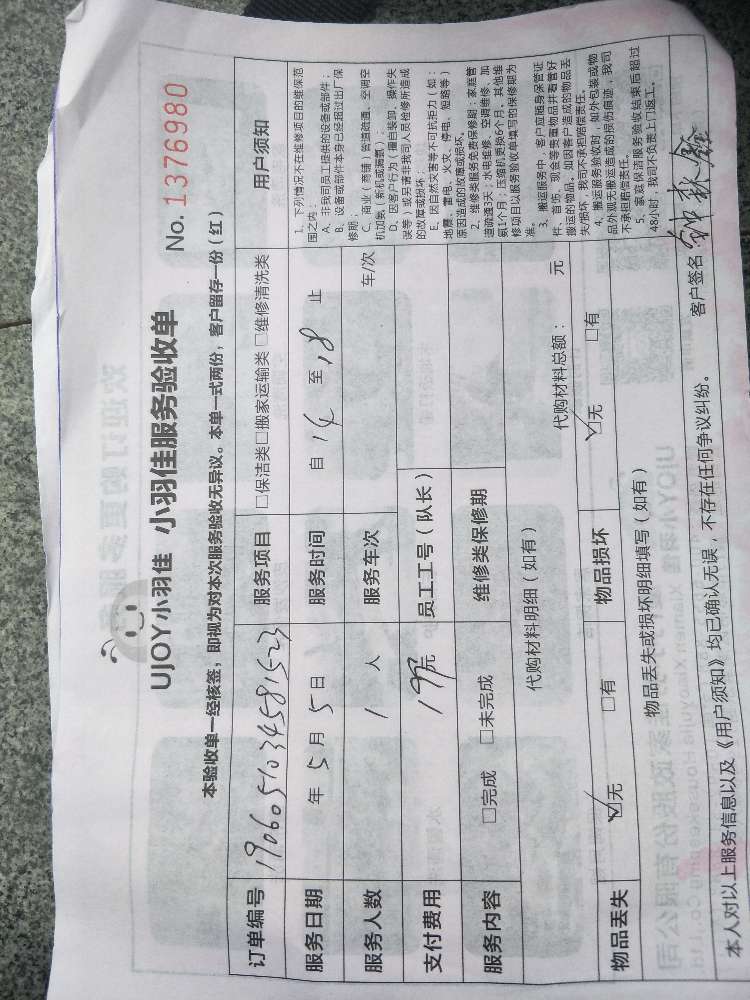 UJOY小羽佳 小羽佳服务验收单
No. 1376980
本验收单一经核签，即视为对本次服务验收无异议。本单一式两份，客户留存一份（红）
订单编号 19060510345815-23 服务项目 □保洁类□搬家运输类 □维修清洗类
服务日期 年 5 月 5 日 服务时间 自 14 至 18 止
服务人数 1 人 服务车次 车/次
支付费用 197元 员工工号（队长）
服务内容 □完成 □未完成 维修类保修期
代购材料明细（如有） 代购材料总额： 元
物品丢失 ☑无 □有 物品损坏 ☑无 □有
物品丢失或损坏明细填写（如有）
用户须知
1、下列情况不在维修项目的维保范
围之内：
A、非我司员工提供的设备或部件；
B、设备或部件本身已经超过出厂保
修期；
C、商业（商铺）管道疏通、空调空
机加氨（新机或漏氨）。
D、因客户行为（擅自装卸、操作失
误等）或另请非我司人员检修所造成
的故障或损坏；
E、因自然灾害等不可抗拒力（如：
地震、雷电、火灾、停电、短路等）
原因造成的故障或损坏。
2、维修类服务免费保修期：家庭管
道疏通3天；水电维修、空调维修、加
氨1个月；压缩机更换6个月、其他维
修项目以服务验收单填写的保修期为
准。
3、搬运服务中，客户应随身保管证
件、首饰、现金等贵重物品并看管好
搬运的物品，如因客户造成的物品丢
失/损坏，我司不承担赔偿责任。
4、搬运服务验收时，如外包装或物
品外观无搬运造成的损伤痕迹，我司
不承担赔偿责任。
5、家庭保洁服务验收结束后超过
48小时，我司不负责上门返工。
本人对以上服务信息以及《用户须知》均已确认无误，不存在任何争议纠纷。 客户签名